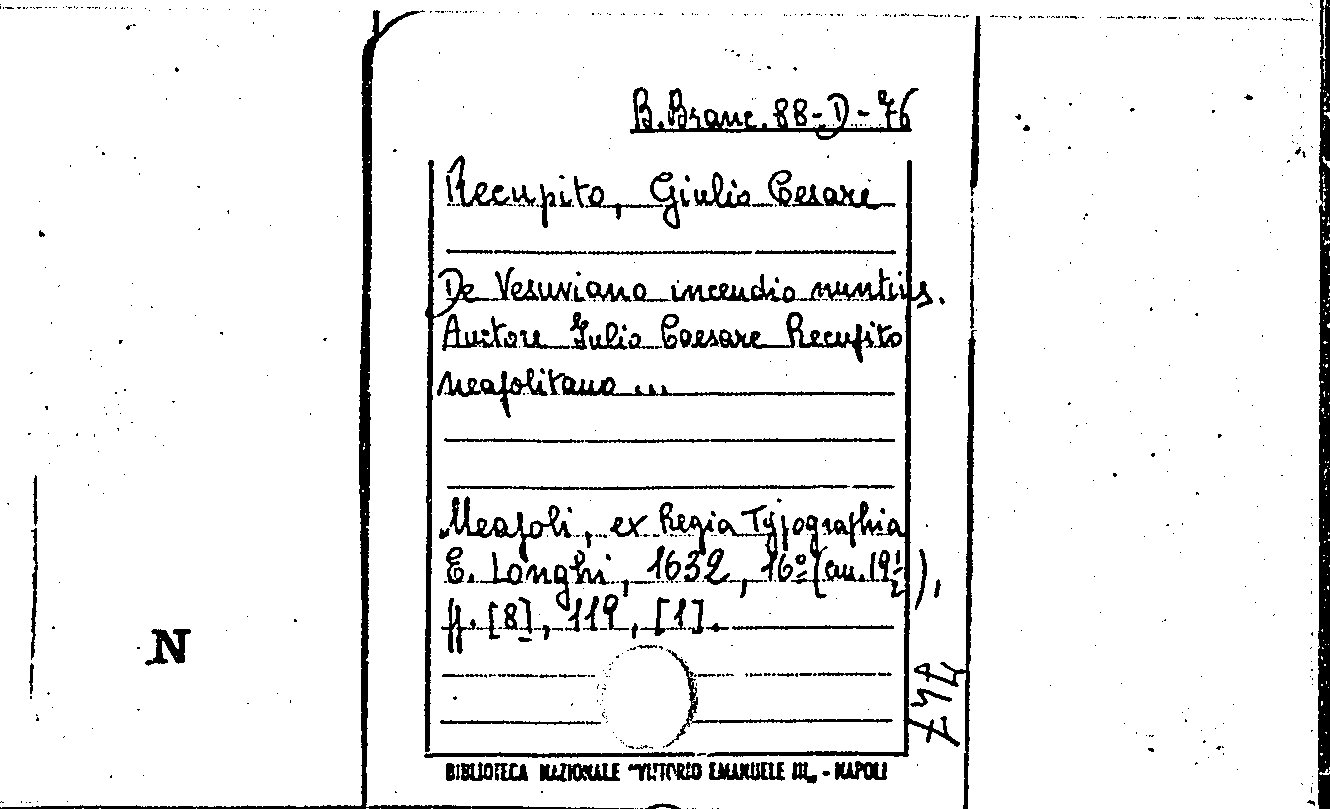 B. Branc. 88-D-76
Recupito, Giulio Cesare
De Vesuviano incendio nuntius.
Auctore Iulio Caesare Recupito
neapolitano ...
Neapoli, ex Regia Typographia
E. Longhi, 1632, 16º (cm. 19½),
pp. [8], 119, [1].
N
BIBLIOTECA NAZIONALE "VITTORIO EMANUELE III„ - NAPOLI